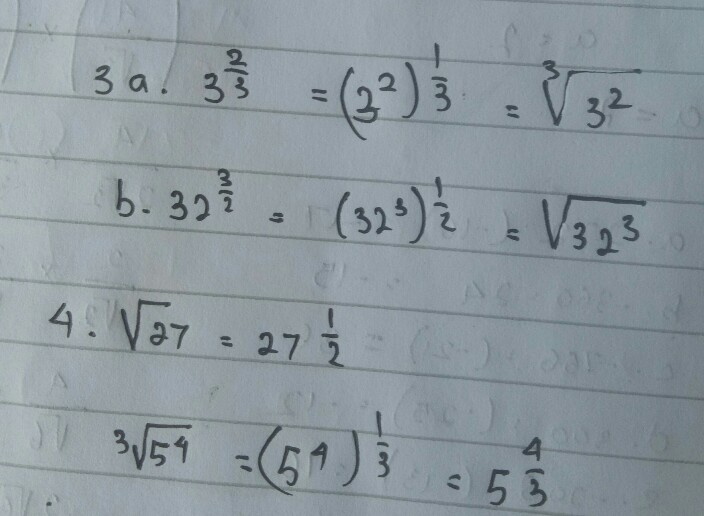 3 a. 3^{2/3} = (3^2)^{1/3} = ∛(3^2)
b. 32^{3/2} = (32^3)^{1/2} = √(32^3)
4. √27 = 27^{1/2}
∛(5^4) = (5^4)^{1/3} = 5^{4/3}